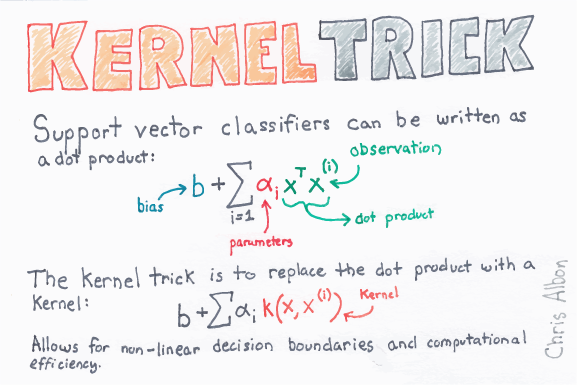 KERNEL TRICK
Support vector classifiers can be written as
a dot product:
observation
bias → b + ∑ αᵢ xᵀ x⁽ⁱ⁾
i=1
dot product
parameters
The Kernel trick is to replace the dot product with a
Kernel:
b + ∑ αᵢ K(x, x⁽ⁱ⁾)
Kernel
Allows for non-linear decision boundaries and computational
efficiency.
Chris Albon